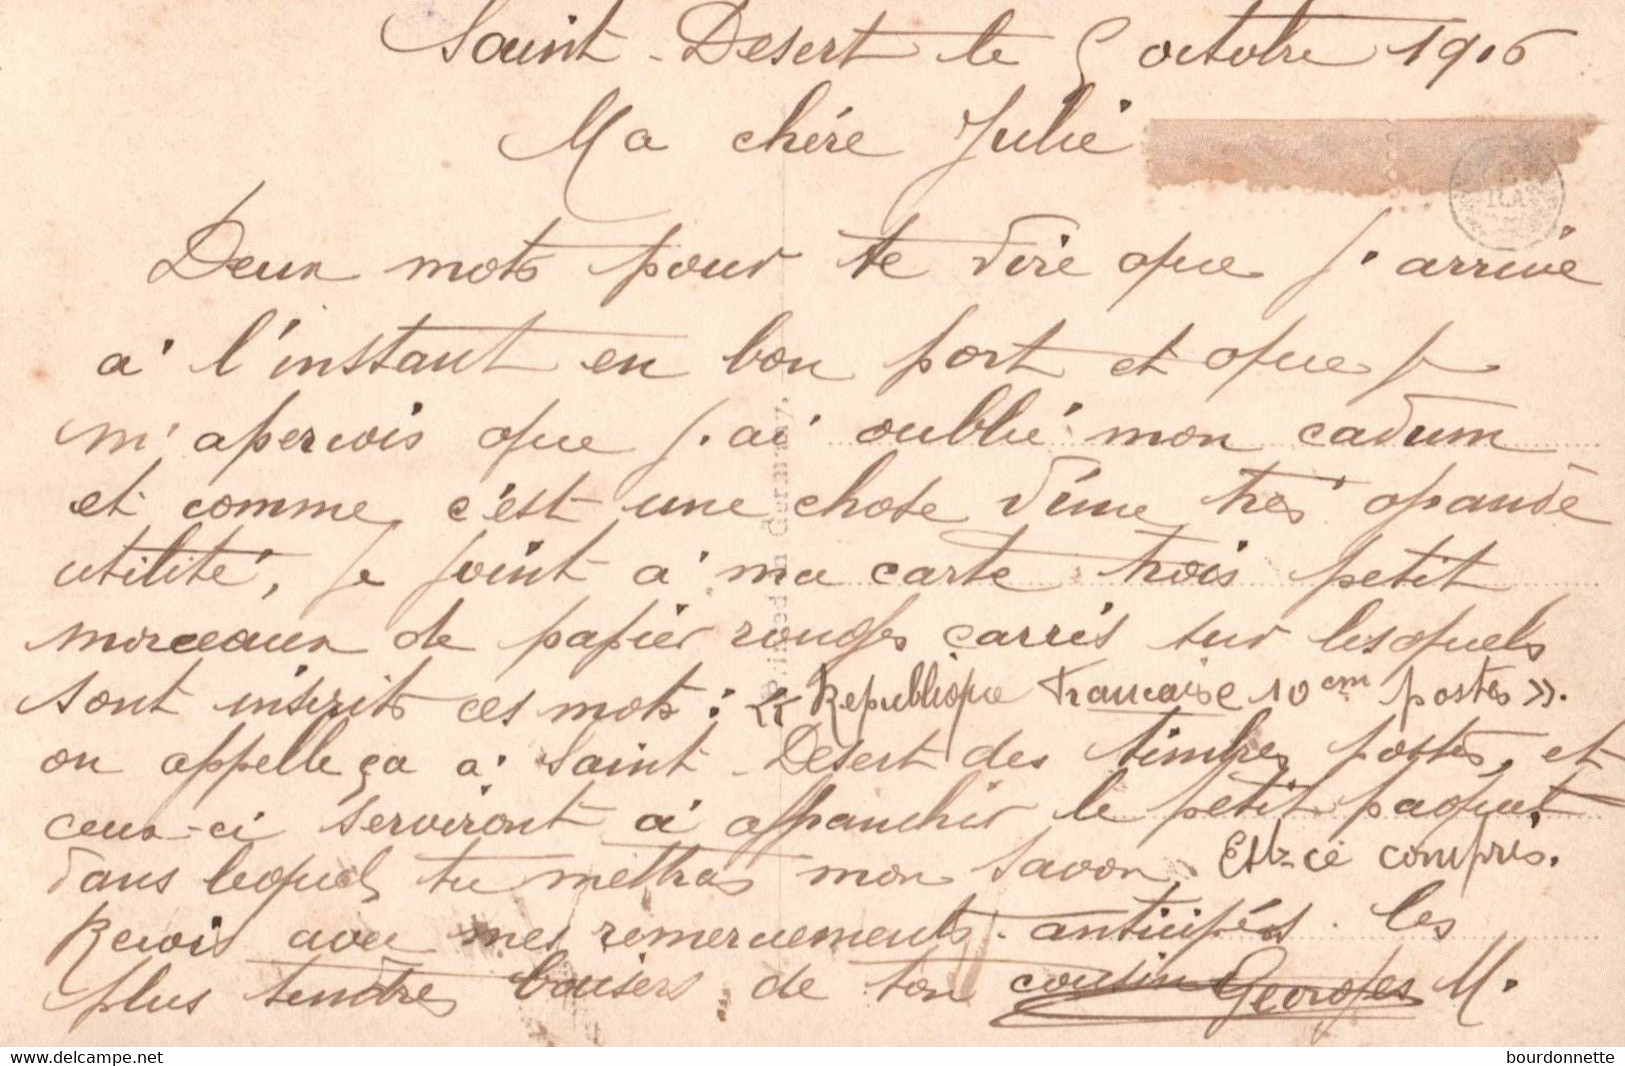 Saint-Desert le 5 octobre 1916
Ma chére Julie
Deux mots pour te dire que j'arrive
a' l'instant en bon port et que je
m'apercois que j'ai oublié mon cadum
et comme c'est une chose d'une très grande
utilité, je joint a' ma carte trois petit
morceaux de papier rouges carrés sur lesquels
sont inscrits ces mots : « Republique francaise 10 cm postes ».
on appelle ça a' Saint-Desert des timbres postes, et
ceux-ci serviront a' affranchir le petit paquet
dans lequel tu mettras mon savon. Est-ce compris.
Recois avec mes remerciements anticipés les
plus tendres baisers de ton cousin Georges M.
Printed in Germany.
https://www.delcampe.net
bourdonnette